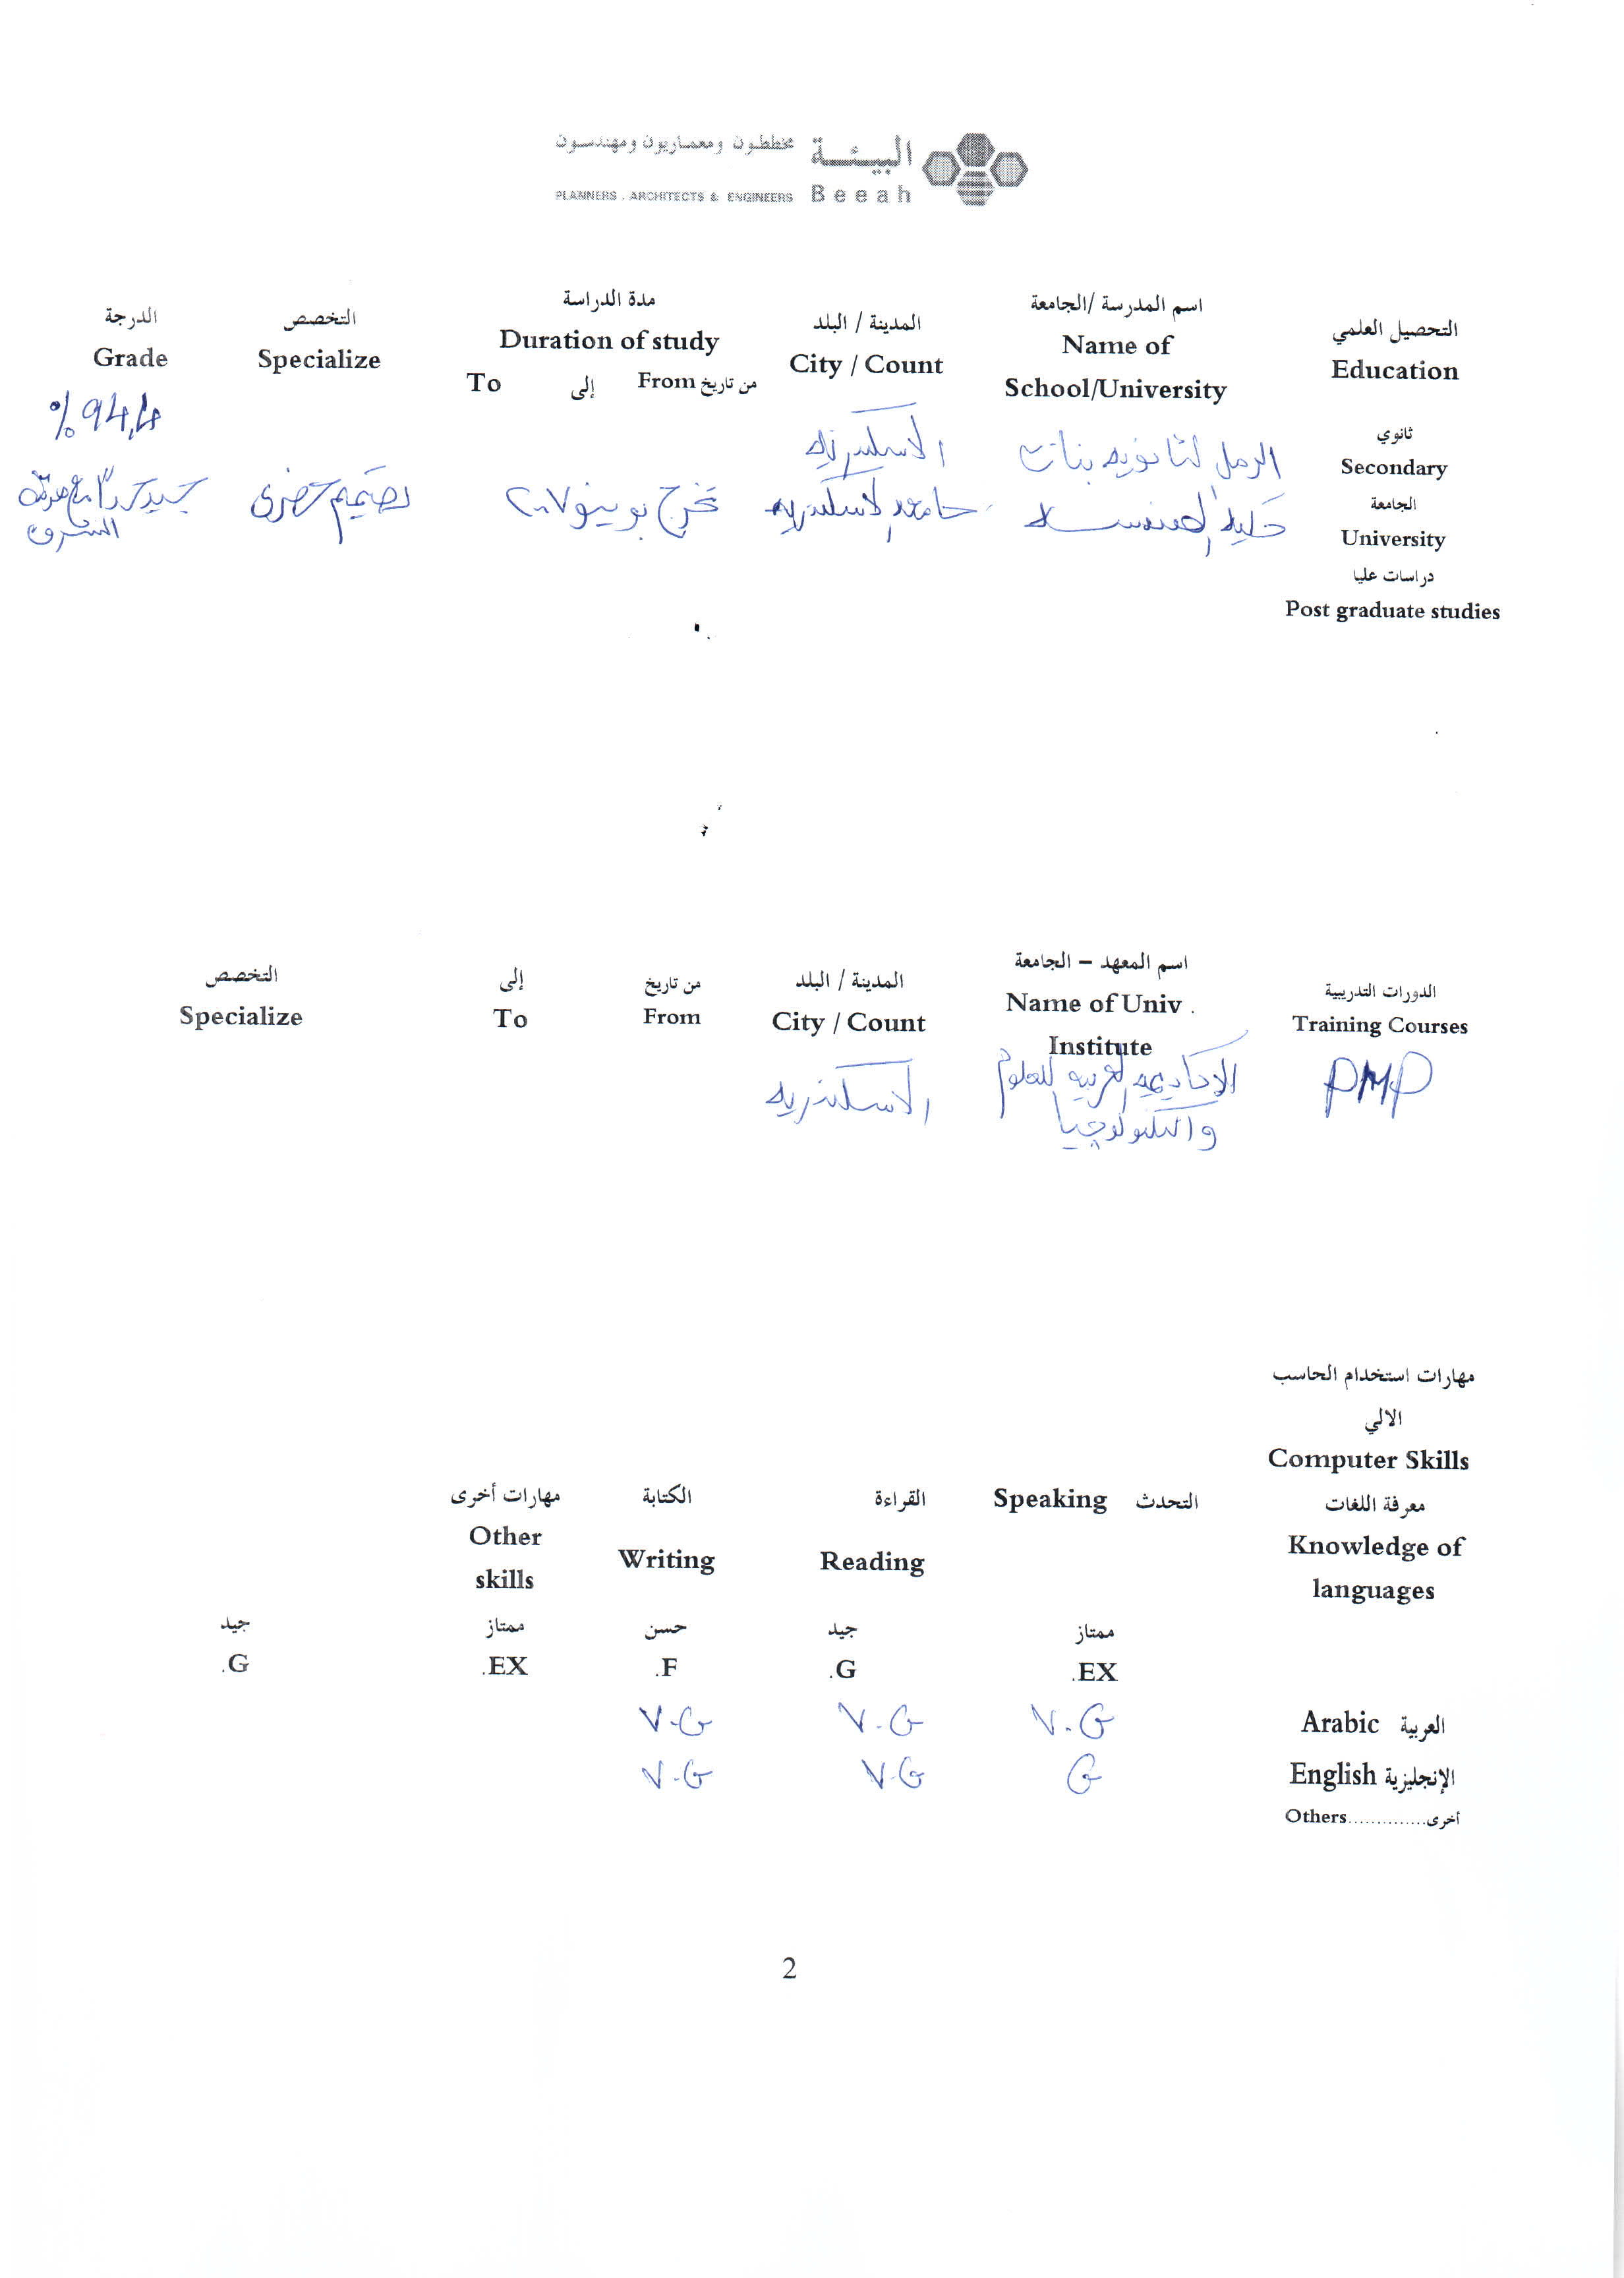 مخططون ومعماريون ومهندسون البيئة
PLANNERS . ARCHITECTS & ENGINEERS Beeah
التحصيل العلمي
Education
اسم المدرسة /الجامعة
Name of
School/University
المدينة / البلد
City / Count
مدة الدراسة
Duration of study
من تاريخ From إلى To
التخصص
Specialize
الدرجة
Grade
ثانوي
Secondary
الرمل الثانويه بنات الاسكندريه %94,4
الجامعة
University
كلية الهندسه جامعه الاسكندريه تخرج يونيو ٢٠٠٧ تصميم حضرى جيد جداً مع مرتبة
الشرف
دراسات عليا
Post graduate studies
الدورات التدريبية
Training Courses
اسم المعهد – الجامعة
Name of Univ .
Institute
المدينة / البلد
City / Count
من تاريخ
From
إلى
To
التخصص
Specialize
PMP الاكاديميه العربيه للعلوم الاسكندريه
والتكنولوجيا
مهارات استخدام الحاسب
الالي
Computer Skills
معرفة اللغات
Knowledge of
languages
التحدث Speaking
القراءة
Reading
الكتابة
Writing
مهارات أخرى
Other
skills
ممتاز جيد حسن ممتاز جيد
.EX .G .F .EX .G
العربية Arabic V.G V.G V.G
الإنجليزية English G V.G V.G
أخرى..............Others
2